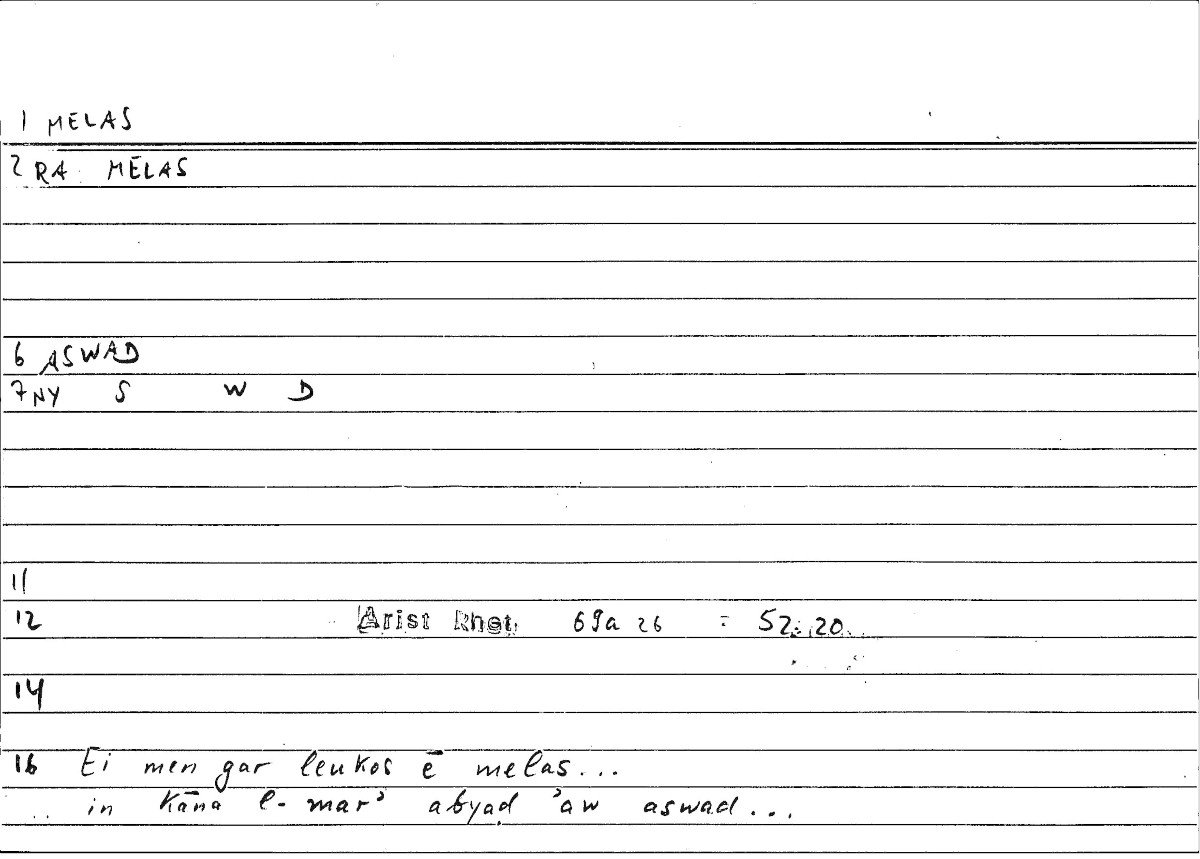 1 MELAS
2 RA MELAS
6 ASWAD
7 NY S W D
11
12 Arist Rhet. 69a 26 = 52, 20
14
16 Ei men gar leukos ē melas...
in kāna l- mar' abyad 'aw aswad...